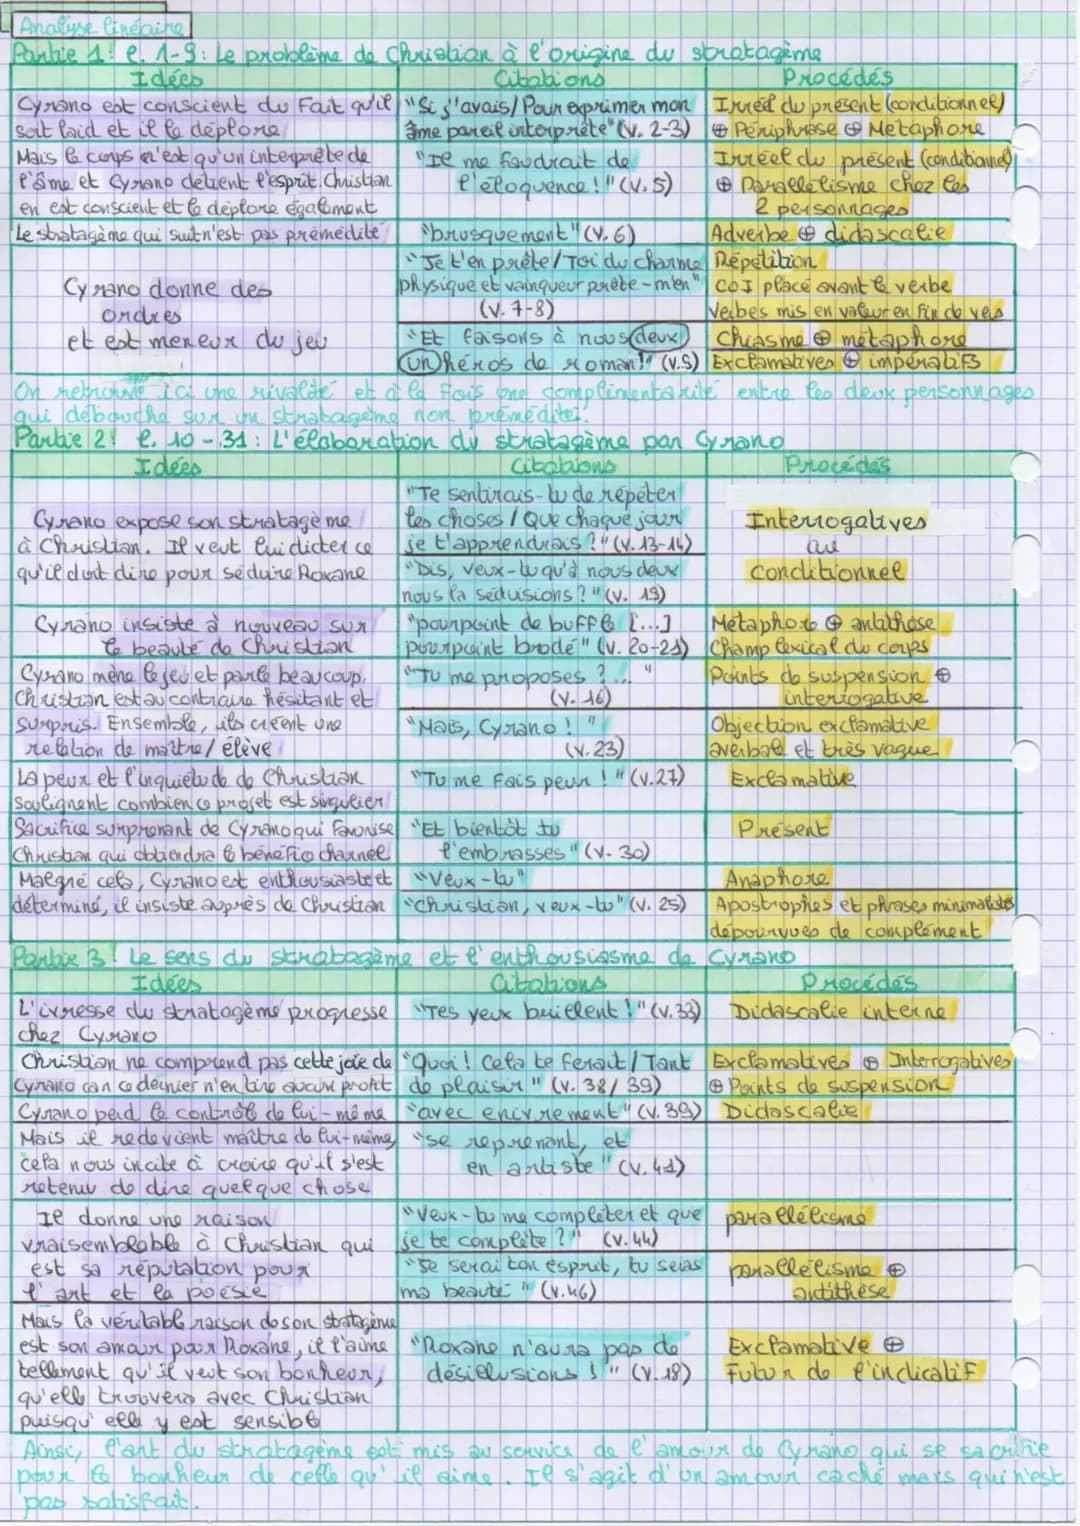 Analyse linéaire
Partie 1: l. 1-9: Le problème de Christian à l'origine du stratagème
Idées
Citations
Procédés
Cyrano est conscient du fait qu'il
soit laid et il le déplore
"Si j'avais / Pour exprimer mon
âme pareil interprète" (v. 2-3)
Irréel du présent (conditionnel)
⊕ Périphrase ⊕ Métaphore
Mais le corps n'est qu'un interprète de
l'âme et Cyrano détient l'esprit. Christian
en est conscient et le déplore également
"Il me faudrait de
l'éloquence !" (v. 5)
Irréel du présent (conditionnel)
⊕ Parallélisme chez les
2 personnages
Le stratagème qui suit n'est pas prémédité
"brusquement" (v. 6)
Adverbe ⊕ didascalie
Cyrano donne des
ordres
et est meneur du jeu
"Je t'en prête / Toi du charme
physique et vainqueur prête-m'en"
(v. 7-8)
Répétition
COI placé avant le verbe
Verbes mis en valeur en fin de vers
"Et faisons à nous deux
un héros de roman!" (v.9)
Chiasme ⊕ métaphore
Exclamatives ⊕ impératifs
On retrouve ici une rivalité et à la fois une complémentarité entre les deux personnages
qui débouche sur un stratagème non prémédité.
Partie 2: l. 10-31: L'élaboration du stratagème par Cyrano
Idées
Citations
Procédés
Cyrano expose son stratagème
à Christian. Il veut lui dicter ce
qu'il doit dire pour séduire Roxane
"Te sentirais-tu de répéter
les choses / Que chaque jour
je t'apprendrais ?" (v. 13-14)
"Dis, veux-tu qu'à nous deux
nous la séduisions ?" (v. 19)
Interrogatives
au
conditionnel
Cyrano insiste à nouveau sur
la beauté de Christian
"pourpoint de buffle [...]
pourpoint brodé" (v. 20-21)
Métaphore ⊕ antithèse
Champ lexical du corps
Cyrano mène le jeu et parle beaucoup,
Christian est au contraire hésitant et
surpris. Ensemble, ils créent une
relation de maître / élève
"Tu me proposes ?... "
(v. 16)
Points de suspension ⊕
interrogative
"Mais, Cyrano ! "
(v. 23)
Objection exclamative
averbale et très vague
La peur et l'inquiétude de Christian
soulignent combien ce projet est singulier
"Tu me fais peur ! " (v.27)
Exclamative
Sacrifice surprenant de Cyrano qui favorise
Christian qui obtiendra le bénéfice charnel
"Et bientôt tu
l'embrasses" (v. 30)
Présent
Malgré cela, Cyrano est enthousiaste et
déterminé, il insiste auprès de Christian
"Veux-tu"
Anaphore
"Christian, veux-tu" (v. 25)
Apostrophes et phrases minimalistes
dépourvues de complément
Partie 3: Le sens du stratagème et l'enthousiasme de Cyrano
Idées
Citations
Procédés
L'ivresse du stratagème progresse
chez Cyrano
"Tes yeux brillent !" (v. 33)
Didascalie interne
Christian ne comprend pas cette joie de
Cyrano car ce dernier n'en tire aucun profit
"Quoi ! Cela te ferait / Tant
de plaisir" (v. 38/39)
Exclamatives ⊕ Interrogatives
⊕ Points de suspension
Cyrano perd le contrôle de lui-même
"avec enivrement" (v. 39)
Didascalie
Mais il redevient maître de lui-même,
cela nous incite à croire qu'il s'est
retenu de dire quelque chose
"se reprenant, et
en artiste" (v. 41)
Il donne une raison
vraisemblable à Christian qui
est sa réputation pour
l'art et la poésie
"Veux-tu me compléter et que
je te complète ?" (v. 44)
parallélisme
"Je serai ton esprit, tu seras
ma beauté " (v. 46)
parallélisme ⊕
antithèse
Mais la véritable raison de son stratagème
est son amour pour Roxane, il l'aime
tellement qu'il veut son bonheur,
qu'elle trouvera avec Christian
puisqu'elle y est sensible
"Roxane n'aura pas de
désillusions ! " (v. 18)
Exclamative ⊕
Futur de l'indicatif
Ainsi, l'art du stratagème est mis au service de l'amour de Cyrano qui se sacrifie
pour le bonheur de celle qu'il aime. Il s'agit d'un amour caché mais qui n'est
pas satisfait.